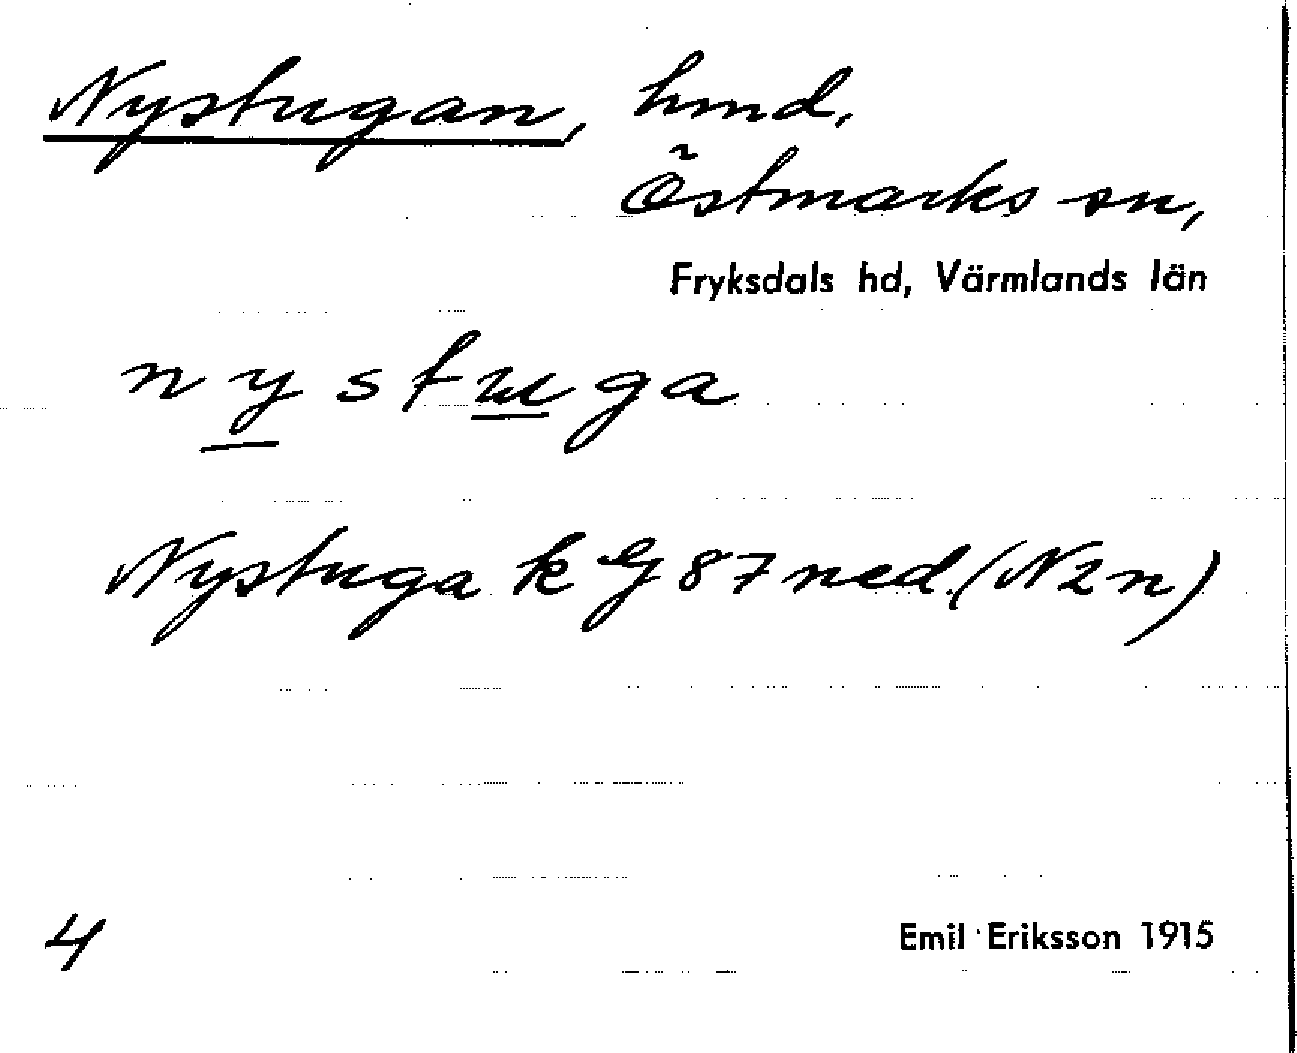 Nystugan, hmd,
Östmarks sn,
Fryksdals hd, Värmlands län
nystuga
Nystuga k G 87 ned. (N2n)
4
Emil Eriksson 1915